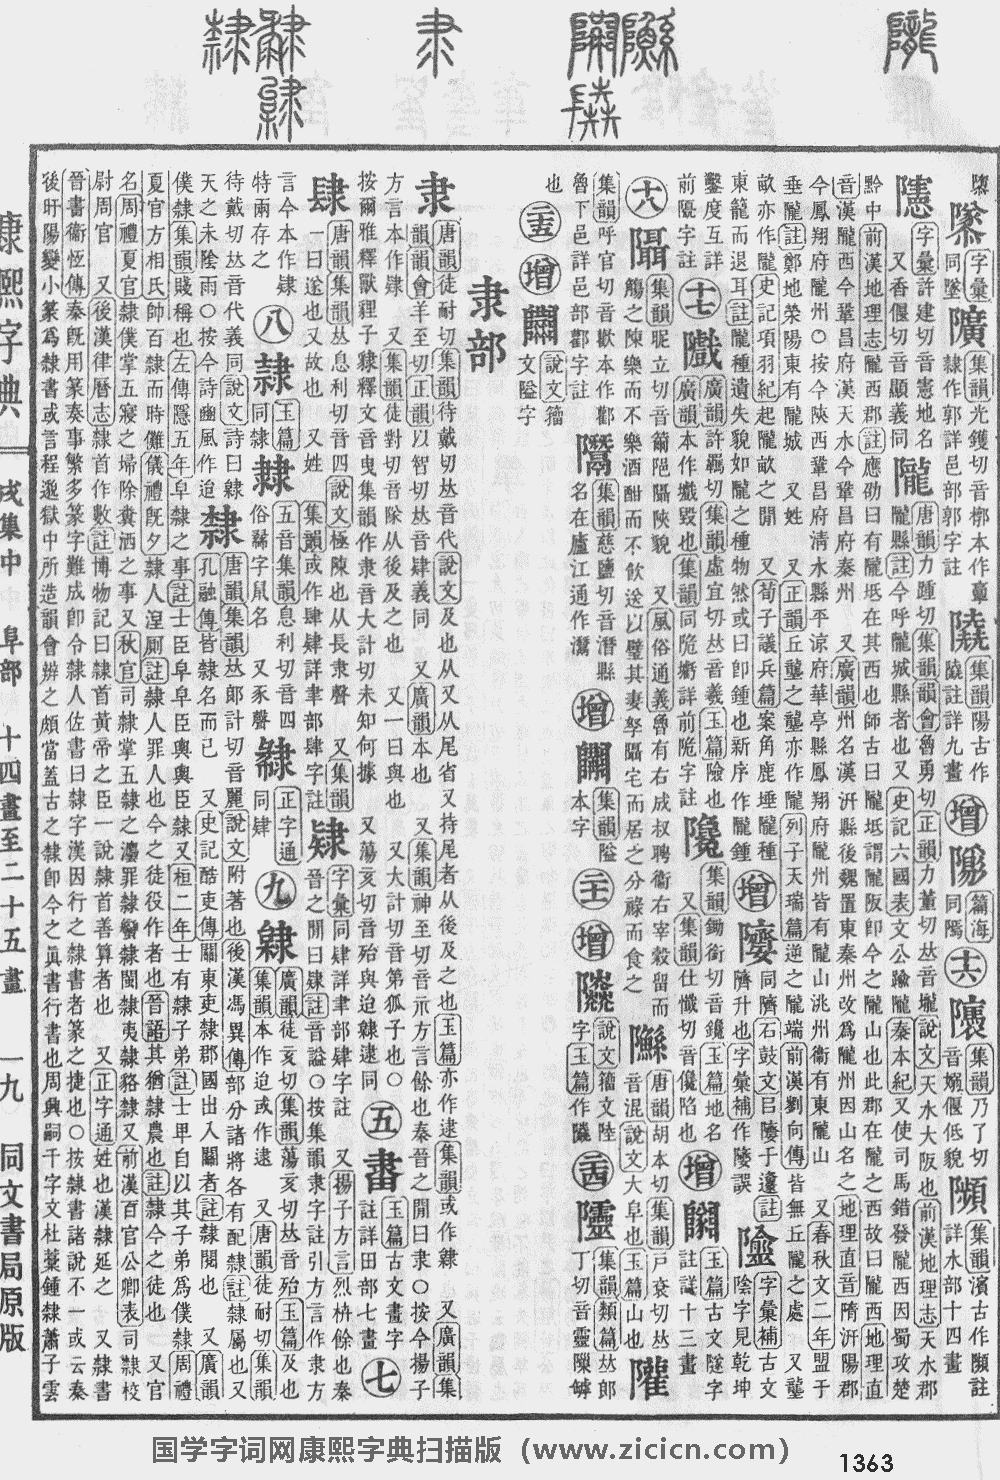 隳
字彙
同墜
集韻光鑊切音槨本作𩫏
隸作郭詳邑部郭字註
集韻陽古作
隢註詳九畫
增
篇海
同隖
集韻乃了切
音嫋偃低貌
集韻濱古作瀕註
詳水部十四畫
字彙許建切音憲地名
又香偃切音顯義同
隴
唐韻力踵切集韻韻會魯勇切正韻力董切𠀤音壠說文天水大阪也前漢地理志天水郡
隴縣註今呼隴城縣者也又史記六國表文公踰隴秦本紀又使司馬錯發隴西因蜀攻楚
黔中前漢地理志隴西郡註應劭曰有隴坻在其西也師古曰隴坻謂隴阪卽今之隴山也此郡在隴之西故曰隴西地理直
音漢隴西今鞏昌府漢天水今鞏昌府秦州 又廣韻州名漢汧縣後魏置東秦州改爲隴州因山名之地理直音隋汧陽郡
今鳳翔府隴州○按今陝西鞏昌府淸水縣平涼府華亭縣鳳翔府隴州皆有隴山洮州衞有東隴山 又春秋文二年盟于
垂隴註鄭地滎陽東有隴城 又姓 又正韻丘壟之壟亦作隴列子天瑞篇逆之隴端前漢劉向傳皆無丘隴之處 又壟
畝亦作隴史記項羽紀起隴畝之閒 又荀子議兵篇案角鹿埵隴種
東籠而退耳註隴種遺失貌如隴之種物然或曰卽鍾也新序作隴鍾
增
同隮石鼓文㠯隮于邍註
隮升也字彙補作隮誤
字彙補古文
陰字見乾坤
鑿度互詳
前隁字註
十七
廣韻許羈切集韻虛宜切𠀤音羲玉篇險也
廣韻本作㩍毀也集韻同陒㙇詳前陒字註
集韻鋤銜切音鑱玉篇地名
又集韻仕懺切音儳陷也
增
玉篇古文隧字
註詳十三畫
十八
集韻昵立切音𥷘阸隰陝貌 又風俗通義魯有右成叔聘衞右宰穀留而
觴之陳樂而不樂酒酣而不飮送以璧其妻孥隰宅而居之分祿而食之
唐韻胡本切集韻戸袞切𠀤
音混說文大阜也玉篇山也
集韻呼官切音歡本作酄
魯下邑詳邑部酄字註
集韻慈鹽切音潛縣
名在廬江通作灊
增
集韻隘
本字
二十
增
說文籀文陸
字玉篇作䧙
二十四
集韻類篇𠀤郎
丁切音靈隙罅
也
二十五
增
說文籀
文隘字
隶部
隶
唐韻徒耐切集韻待戴切𠀤音代說文及也从又从尾省又持尾者从後及之也玉篇亦作逮集韻或作隸 又廣韻集
韻韻會羊至切正韻以智切𠀤音肄義同 又廣韻本也 又集韻神至切音示方言餘也秦晉之閒曰隶○按今揚子
方言本作肄 又集韻徒對切音隊从後及之也 又一曰與也 又大計切音第狐子也○
按爾雅釋獸貍子隸釋文音曳集韻作隶音大計切未知何據 又蕩亥切音殆與迨隸逮同
五
玉篇古文畫字
註詳田部七畫
七
肆
唐韻集韻𠀤息利切音四說文極陳也从長隶聲 又集韻
一曰遂也又故也 又姓 集韻或作肆肆詳聿部肆字註
字彙同肆詳聿部肆字註 又揚子方言烈枿餘也秦
晉之閒曰肄註音謚○按集韻隶字註引方言作隶方
言今本作肄
特兩存之
八
玉篇
同隸
五音集韻息利切音四
俗䰡字鼠名 又豕聲
正字通
同肆
九
廣韻徒亥切集韻蕩亥切𠀤音殆玉篇及也
集韻本作迨或作逮 又唐韻徒耐切集韻
待戴切𠀤音代義同說文詩曰隸
天之未陰雨○按今詩豳風作迨
隸
唐韻集韻𠀤郞計切音麗說文附著也後漢馮異傳部分諸將各有配隸註隸屬也又
孔融傳皆隸名而已 又史記酷吏傳關東吏隸郡國出入關者註隸閱也 又廣韻
僕隸集韻賤稱也左傳隱五年皁隸之事註士臣皁皁臣輿輿臣隸又桓二年士有隸子弟註士𤰞自以其子弟爲僕隸周禮
夏官方相氏帥百隸而時儺儀禮旣夕隸人湼厠註隸人罪人也今之徒役作者也晉語其猶隸農也註隸今之徒也 又官
名周禮夏官隸僕掌五寢之埽除糞洒之事又秋官司隸掌五隸之灋罪隸蠻隸閩隸夷隸貉隸又前漢百官公卿表司隸校
尉周官 又後漢律曆志隸首作數註博物記曰隸首黃帝之臣一說隸首善算者也 又正字通姓也漢隸延之 又隸書
晉書衞恆傳秦旣用篆奏事繁多篆字難成卽令隸人佐書曰隸字漢因行之隸書者篆之捷也○按隸書諸說不一或云秦
後旴陽變小篆爲隸書或言程邈獄中所造韻會辨之頗當蓋古之隸卽今之眞書行書也周興嗣千字文杜藁鍾隸蕭子雲
康熙字典
戌集中
阜部
十四畫至二十五畫
一九
同文書局原版
国学字词网康熙字典扫描版（www.zicicn.com）
1363